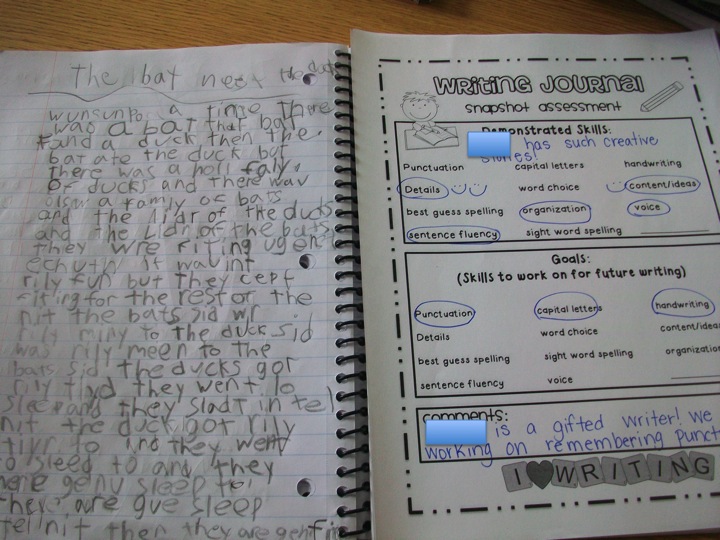 the bat nest the duck
wunsunpo a time There
was a bat That bat
fand a duck then the
bat ate the duck but
there was a holl faly
of ducks and there wav
olsw a family of bats
and the lidr of the duds
and the Lidr of the bats
they wre riting ugen
echuth it wavint
rily fun but they cept
fiting for the rest or the
nit the bats sid wr
rily miny to the duck sid
was rily meen to the
bats sid the ducks got
rily tiyd they went to
sleep and they sladt in tel
nit the duck got rily
tiyr to and they went
to sleep to and they
are genu sleep tel
there are gue sleep
telinit then they are gen
WRITING JOURNAL
snapshot assessment
Demonstrated Skills:
has such creative
stories!
Punctuation capital letters handwriting
Details word choice content/ideas
best guess spelling organization voice
sentence fluency sight word spelling
Goals:
(Skills to work on for future writing)
Punctuation capital letters handwriting
Details word choice content/ideas
best guess spelling sight word spelling organizatio
sentence fluency voice
comments:
is a gifted writer! We
working on remembering punct
I WRITING